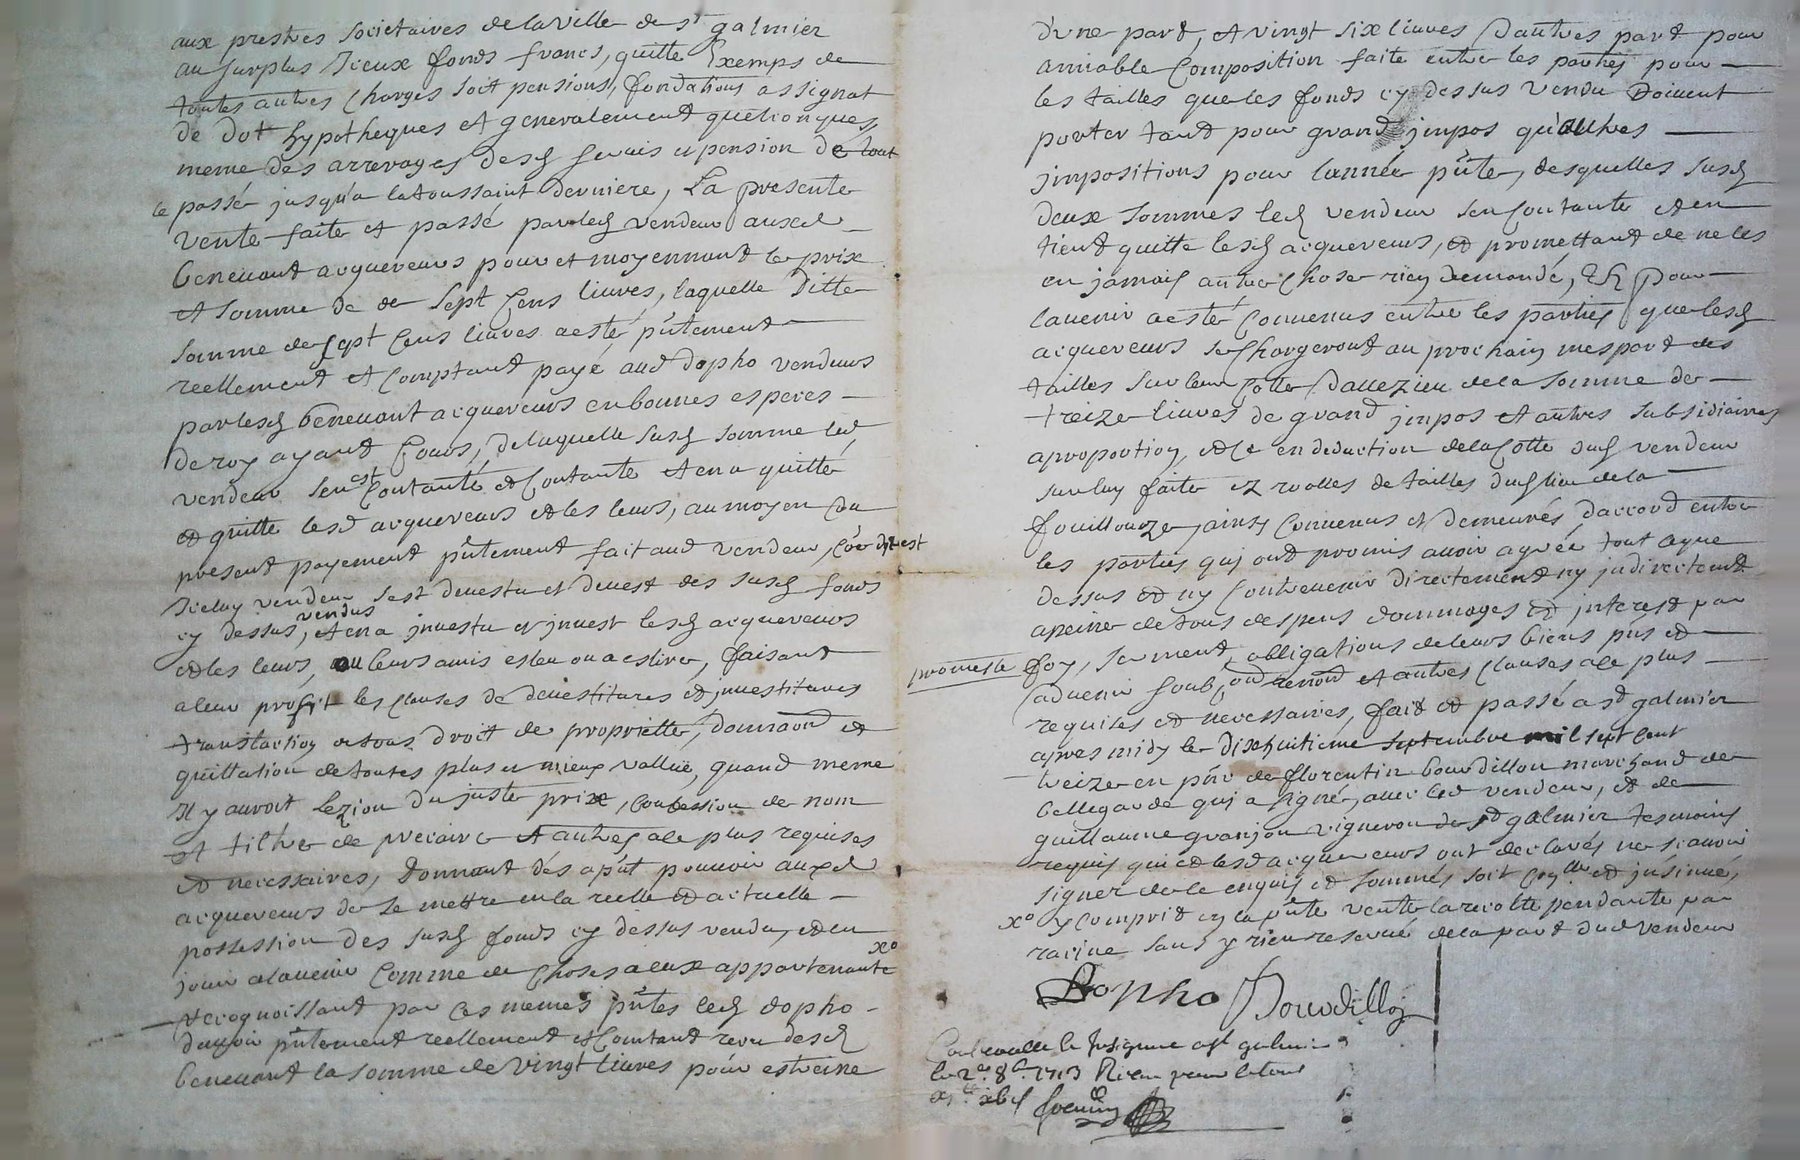 aux prestres societaires de la ville de st galmier
au surplus Iceux fonds francs, quitte Exemps de
toutes autres Charges soit pensions, fondations assignat
de dot hypotheques et generalement quelconques,
meme des arrerages desd servis et pension de tout
le passé jusqu'a la toussaint derniere, La presente
vente faite et passé par led vendeur auxd
benevant acquereurs pour et moyennant le prix
et somme de de sept Cens livres, laquelle ditte
somme de sept Cens livres a esté pñtement
reellement et Comptant payé aud dopho vendeurs
par lesd benevant acquereurs en bonnes especes
de roy ayant Cours, de laquelle susd somme led
vendeur s'en est Contanté et Contante et en a quitté
et quitte lesd acquereurs et les leurs, au moyen du
present payement pñtement fait aud vendeur,
Iceluy vendeur s'est devestu et devest des susd fonds
cy dessus vendus, et en a jnvestu et jnvest lesd acquereurs
et les leurs, ou leurs amis esleu ou a eslire, faisant
a leur profit les clauses de devestitures et jnvestitures
translaction de tous droit de proprietté, donnaon et
quittation de toutes plus et mieux vallue, quand meme
Il y auroit lezion du juste prix, Confession de nom
et tiltre de precaire et autres ale plus requises
et necessaires, donnant dés apñt pouvoir auxd
acquereurs de se mettre en la reelle et actuelle
possession des susd fonds cy dessus vendu, et en
jouir alavenir Comme de Choses a eux appartenante xo
recognoissant par Ces memes pñtes led dopho
d'avoir pñtement reellement et Comtant receu desd
benevant la somme de vingt livres pour estreine
d'une part, et vingt six livres d'autres part pour
amiable Composition faite entre les parties pour
les tailles que les fonds cy dessus vendu doivent
porter tant pour grand jmpos qu'autres
jmpositions pour l'année pñte, desquelles susd
deux sommes led vendeur s'en Contante et en
tient quitte lesd acquereurs, et promettant de ne les
en jamais autre Chose rien demandé, Et pour
lavenir a esté Convenus entre les parties que lesd
acquereurs se Chargeront au prochain mespart des
tailles sur leur Cotte d'avezieu de la somme de
treize livres de grand jmpos et autres subsidiaires
a proportion, et Ce en deduction de la Cotte dud vendeur
sur luy faite ez rolles de tailles dud lieu de la
fouillouze, jainsy Convenus et demeurés d'accord entre
les parties qui ont promis avoir agreé tout Ceque
dessus et ny Contrevenir directement ny jndirectemt
apeine de tous despens dommages et jnterest par
promeste foy, serment obligations de leurs biens pñs et
advenir soub, renond et autres clauses ale plus
requises et necessaires, fait et passé a st galmier
apres midy le dixhuitieme septembre mil sept Cent
treize en pñce de florentin bourdillon marchand de
bellegarde qui a signé, avec led vendeur, et de
guillaume granjon vigneron de st galmier tesmoins
requis qui et lesd acquereurs ont declarés ne scavoir
signer de Ce enquis et sommés, soit Conllé et jnsinué,
xo y Compris en la pñte vente la recolte pendante par
racine sans y rien reservé de la part dud vendeur
Dopho Bourdillon
Controllé & Insigniné a st galmier
le 2e 8b. 1713